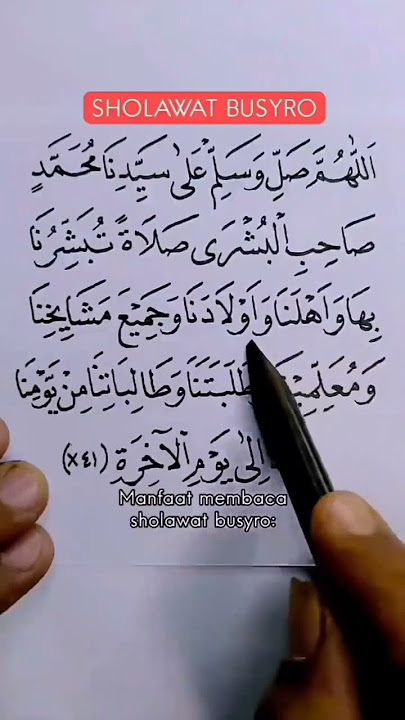 SHOLAWAT BUSYRO
اَللّٰهُمَّ صَلِّ وَسَلِّمْ عَلٰى سَيِّدِنَا مُحَمَّدٍ
صَاحِبِ الْبُشْرَى صَلَاةً تُبَشِّرُنَا
بِهَا وَاَهْلَنَا وَاَوْلَادَنَا وَجَمِيْعَ مَشَايِخِنَا
وَمُعَلِّمِيْنَا طَلَبَتَنَا وَطَالِبَاتِنَا مِنْ يَوْمِنَا
اِلٰى يَوْمِ الْآخِرَةِ (٤١×)
Manfaat membaca
sholawat busyro: